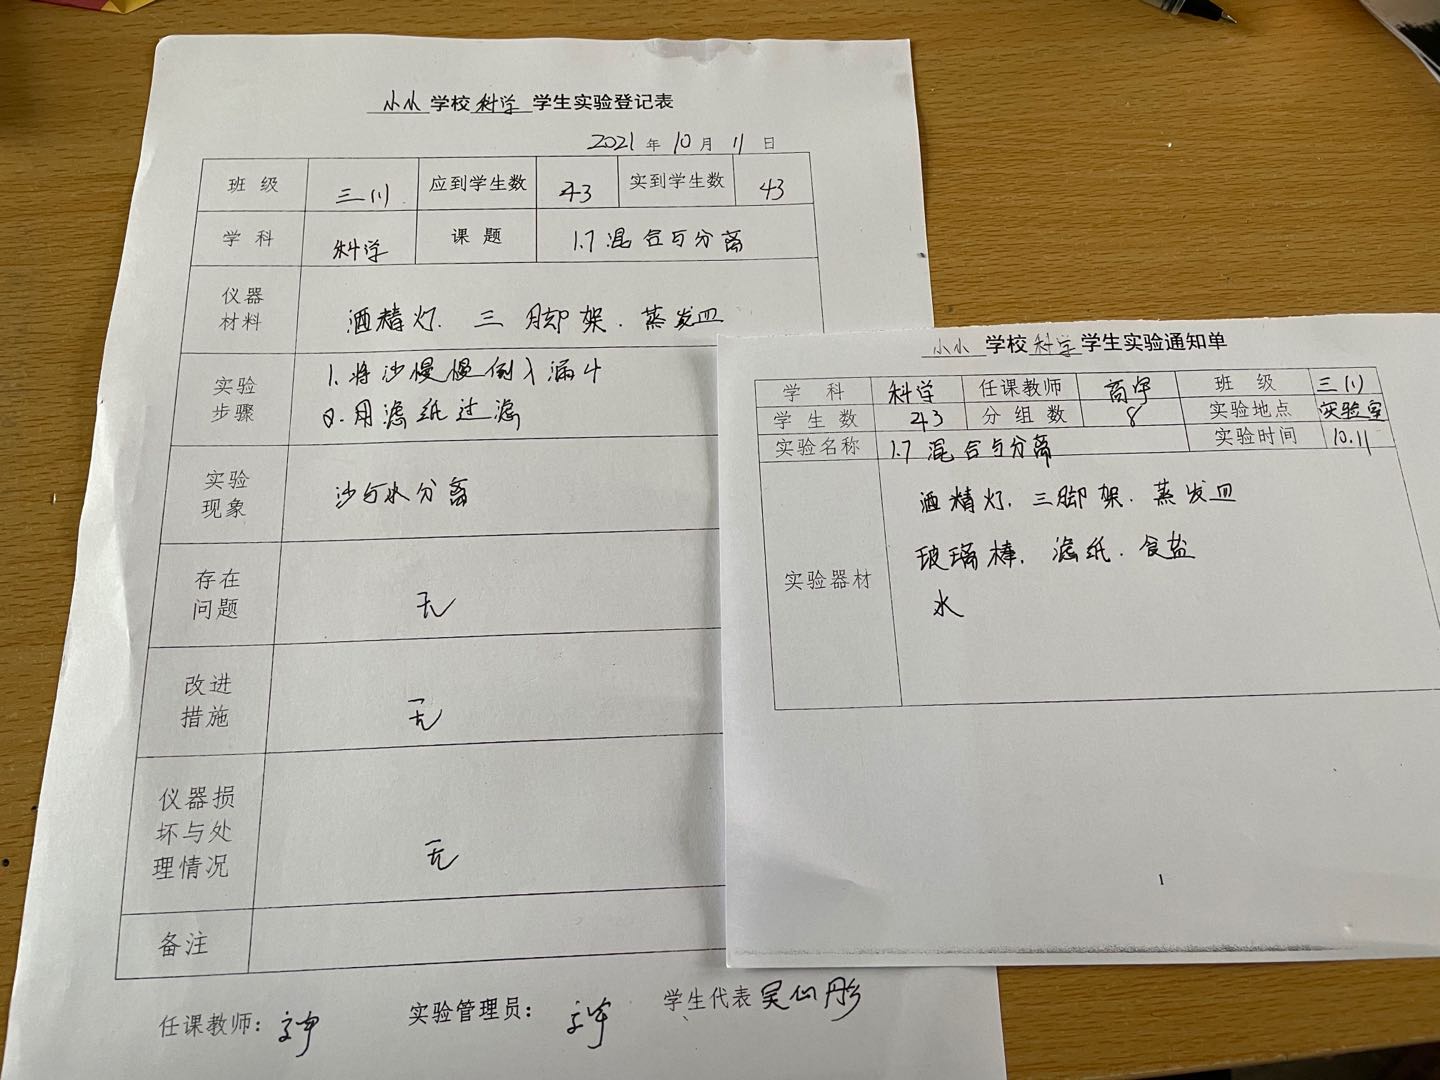 小小 学校 科学 学生实验登记表
2021 年 10 月 11 日
班 级 三(1) 应到学生数 43 实到学生数 43
学 科 科学 课 题 1.7 混合与分离
仪器
材料
酒精灯. 三脚架. 蒸发皿
实验
步骤
1. 将沙慢慢倒入漏斗
2. 用滤纸过滤
实验
现象
沙与水分离
存在
问题
无
改进
措施
无
仪器损
坏与处
理情况
无
备注
任课教师:
实验管理员:
学生代表
小小 学校 科学 学生实验通知单
学 科 科学 任课教师 商宇 班 级 三(1)
学 生 数 43 分 组 数 8 实验地点 实验室
实验名称 1.7 混合与分离 实验时间 10.11
实验器材
酒精灯. 三脚架. 蒸发皿
玻璃棒. 滤纸. 食盐
水
1